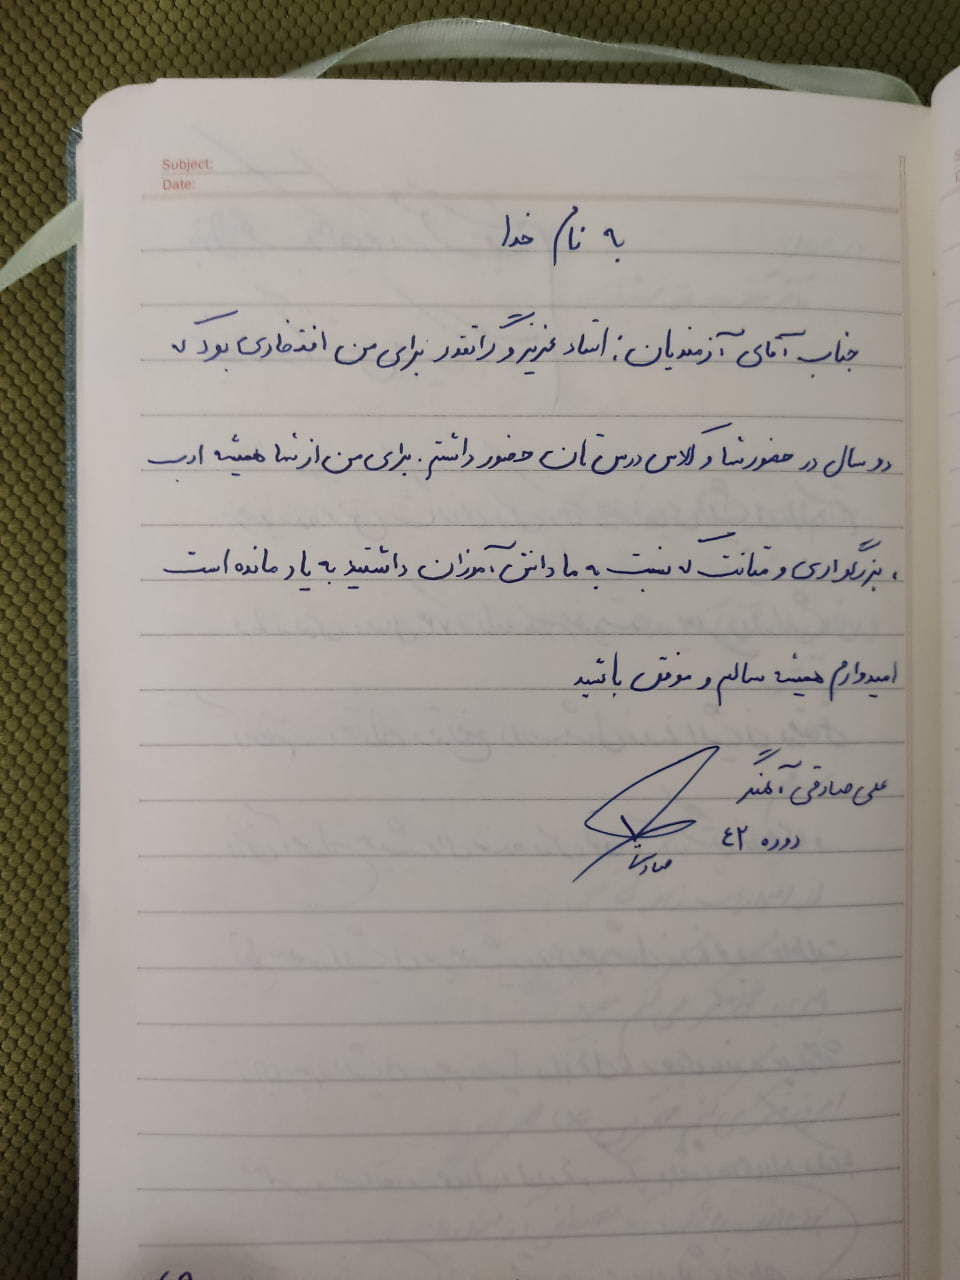 Subject:
Date:
به نام خدا
جناب آقای آزمندیان: استاد عزیز و گرانقدر برای من افتخاری بود که
دو سال در حضور شما و کلاس درس تان حضور داشتم. برای من از شما همیشه ادب
، بزرگواری و متانت که نسبت به ما دانش آموزان داشتید به یاد مانده است
امیدوارم همیشه سالم و موفق باشید
علی صادقی آهنگر
دوره ٤٢